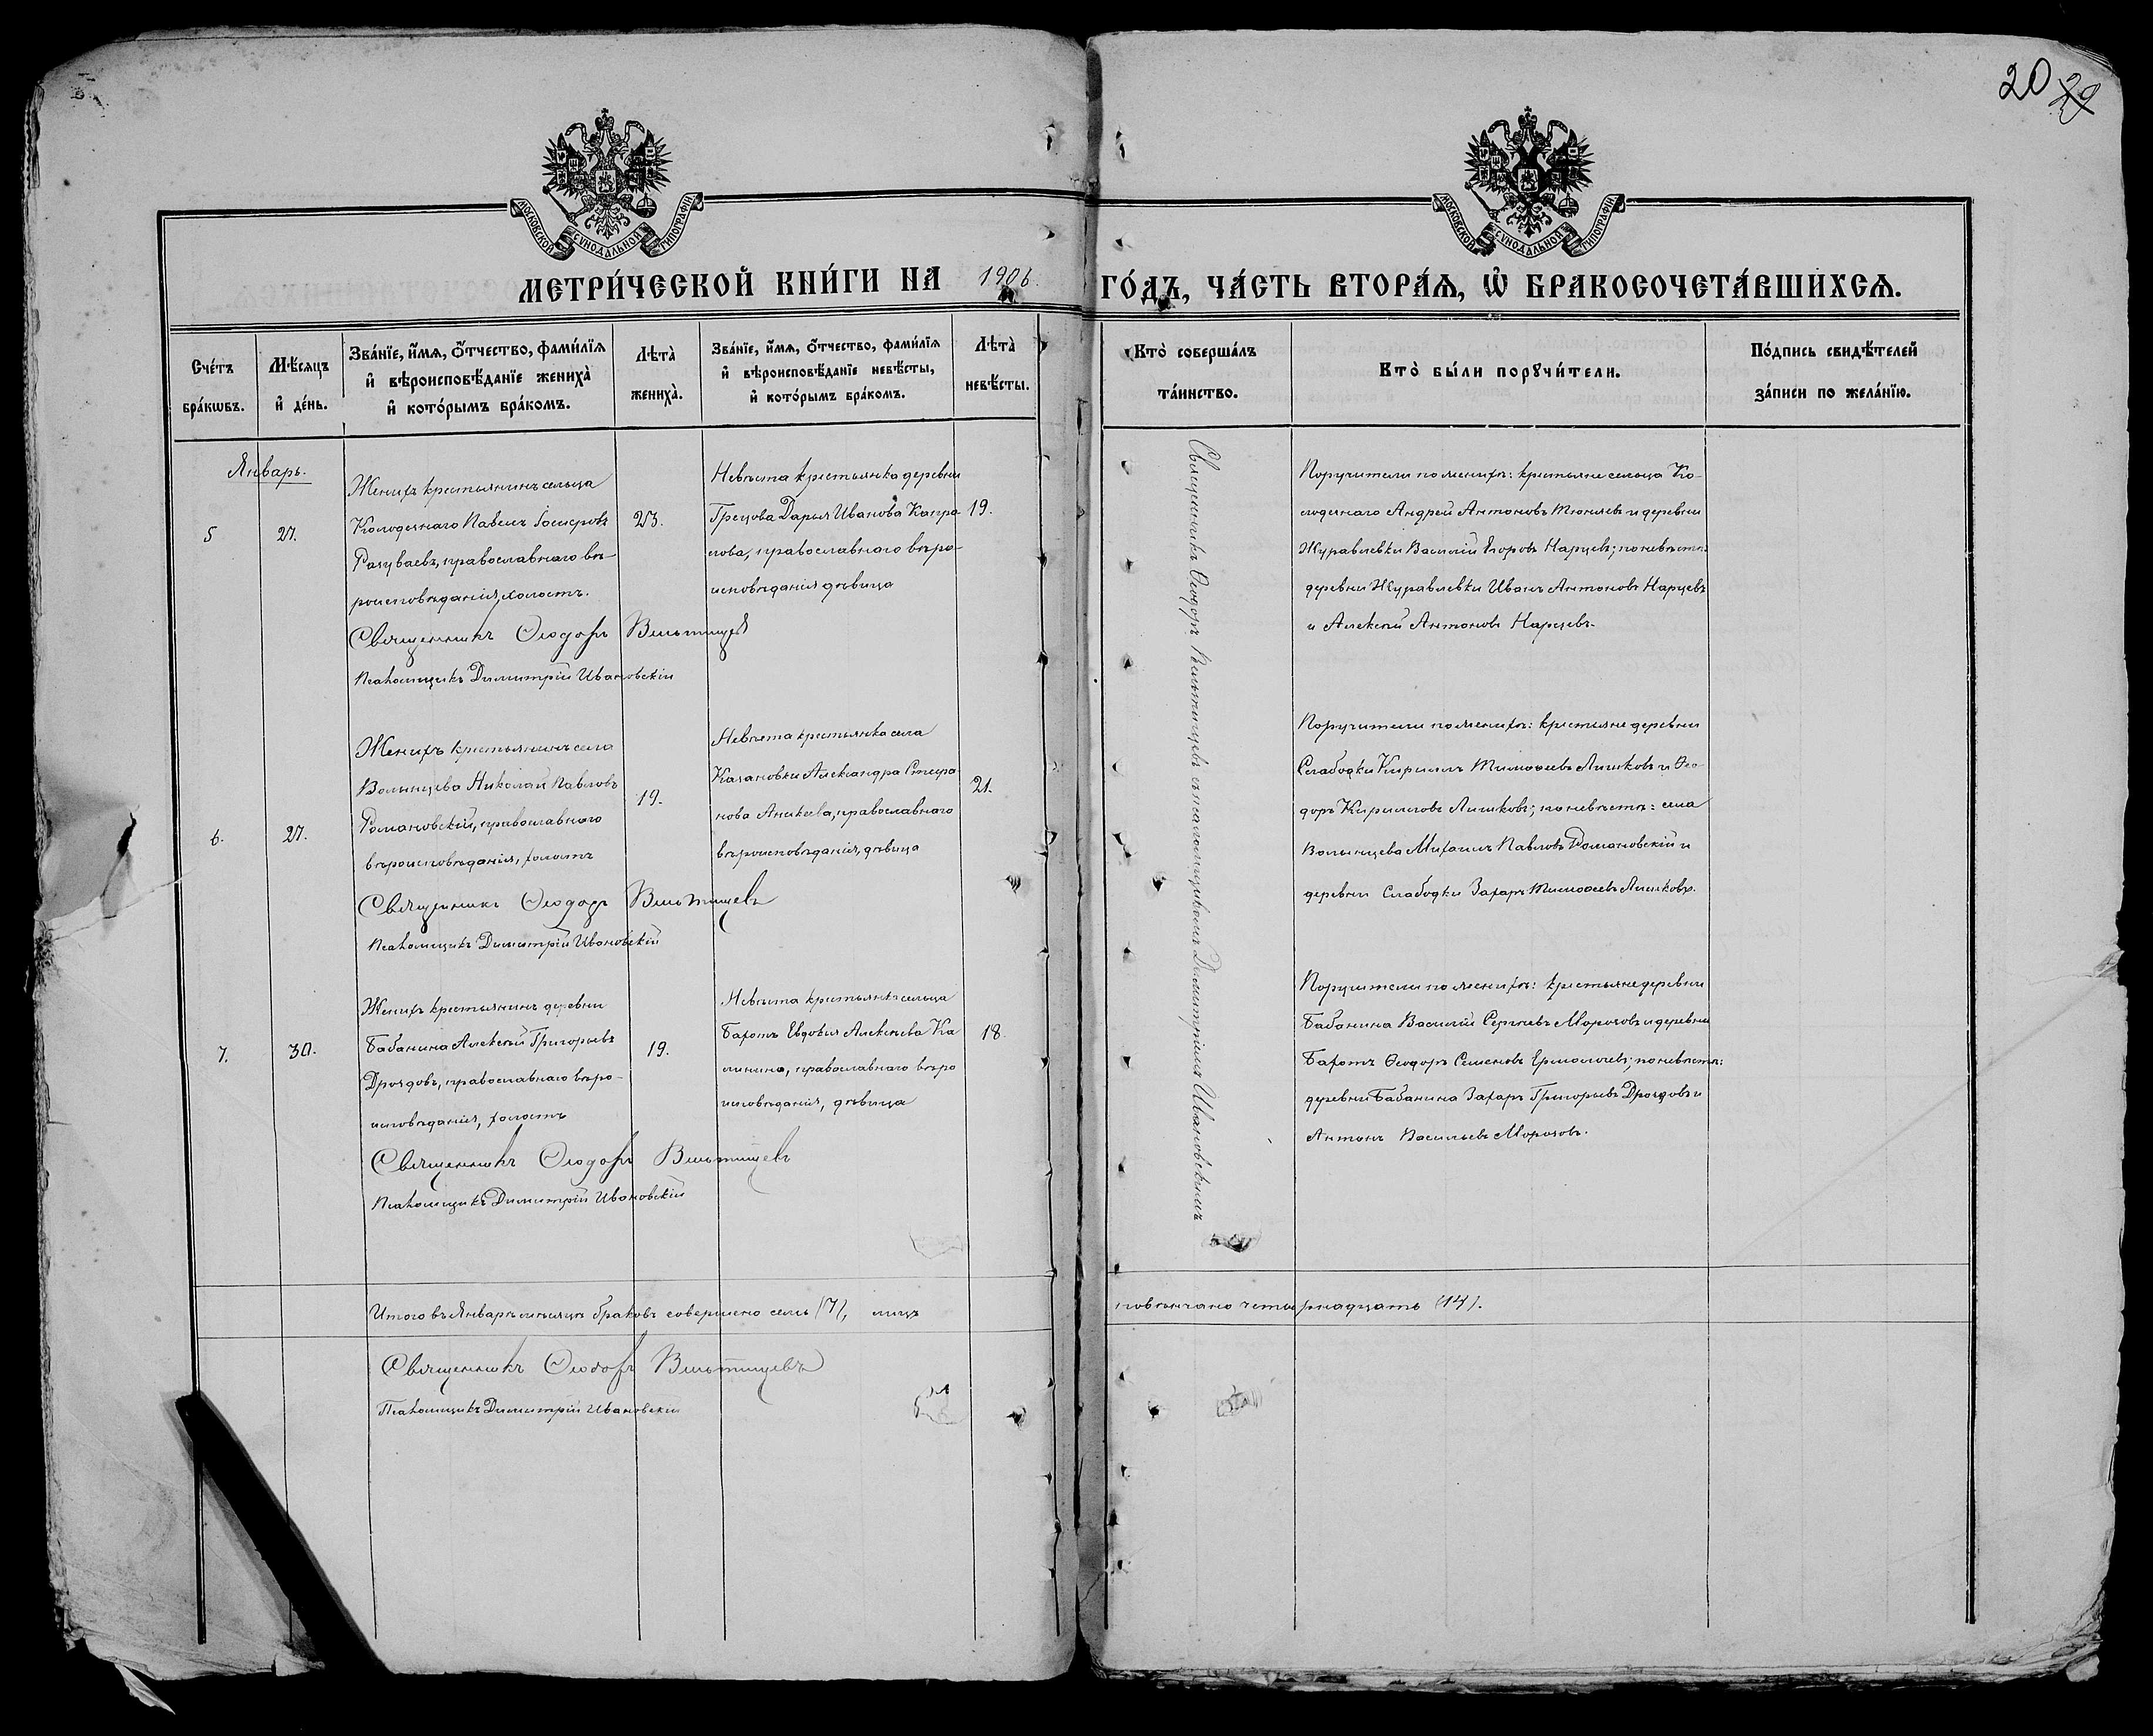 20 29
МОСКОВСКОЙ СѴНОДАЛЬНОЙ ТИПОГРАФІИ
МОСКОВСКОЙ СѴНОДАЛЬНОЙ ТИПОГРАФІИ
МЕТРИ́ЧЕСКОЙ КНИ́ГИ НА 1906. ГО́ДЪ, ЧА́СТЬ ВТОРА́Ѧ, Ѽ БРАКОСОЧЕТА́ВШИХСѦ.
Сче́тъ бра́кѡвъ.
Мѣ́сѧцъ и҆ де́нь.
Зва́нїе, и҆́мѧ, ѻ҆́тчество, фами́лїѧ
и҆ вѣроисповѣ́данїе жениха̀
и҆ кото́рымъ бра́комъ.
Лѣта̀ жениха̀.
Зва́нїе, и҆́мѧ, ѻ҆́тчество, фами́лїѧ
и҆ вѣроисповѣ́данїе невѣ́сты,
и҆ кото́рымъ бра́комъ.
Лѣта̀ невѣ́сты.
Кто̀ соверша́лъ
та́инство.
Кто̀ бы́ли порꙋчи́тели.
По́дпись свидѣ́телей
за́писи по жела́нїю.
Январь.
5
27.
Женихъ крестьянинъ сельца
Колодезнаго Павелъ
Разуваевъ, православнаго вѣ-
роисповѣданія, холостъ.
23.
Невѣста крестьянка деревни
Грецова Дарья Иванова Капра-
лова, православнаго вѣро-
исповѣданія дѣвица
19.
Священникъ Ѳеодоръ Вильтищевъ
Псаломщикъ Димитрій Ивановскій
Поручители по женихѣ: крестьяне сельца Ко-
лодезнаго Андрей Антоновъ и деревни
Журавлевки Василій Егоровъ Нарцевъ; по невѣстѣ:
деревни Журавлевки Иванъ Антоновъ Нарцевъ
и Алексѣй Антоновъ Нарцевъ.
6.
27.
Женихъ крестьянинъ села
Волынцева Николай Павловъ
Романовскій, православнаго
вѣроисповѣданія, холостъ
19.
Невѣста крестьянка села
Казановки Александра Стефа-
нова Аникѣева, православнаго
вѣроисповѣданія, дѣвица
21.
Священникъ Ѳеодоръ Вильтищевъ
Псаломщикъ Димитрій Ивановскій
Поручители по женихѣ: крестьяне деревни
Слабодки Кириллъ Тимоѳеевъ Лишковъ и Ѳео-
доръ Кирилловъ Лишковъ; по невѣстѣ: села
Волынцева Михаилъ Павловъ Романовскій и
деревни Слабодки Захаръ Тимоѳеевъ Лишковъ.
7.
30.
Женихъ крестьянинъ деревни
Бабанина Алексѣй Григорьевъ
Дроздовъ, православнаго вѣро-
исповѣданія, холостъ
19.
Невѣста крестьянка сельца
Бахотъ Евдокія Алексѣева Ка-
линина, православнаго вѣро-
исповѣданія, дѣвица
18.
Священникъ Ѳеодоръ Вильтищевъ
Псаломщикъ Димитрій Ивановскій
Поручители по женихѣ: крестьяне деревни
Бабанина Василій Сергѣевъ Морозовъ и деревни
Бахотъ Ѳеодоръ Семеновъ Ермолаевъ; по невѣстѣ:
деревни Бабанина Захаръ Григорьевъ Дроздовъ и
Антонъ Васильевъ Морозовъ.
Священникъ Ѳеодоръ Вильтищевъ съ псаломщикомъ Димитріемъ Ивановскимъ
Итого въ Январѣ мѣсяцѣ браковъ совершено семь (7), лицъ повѣнчано четырнадцать (14).
Священникъ Ѳеодоръ Вильтищевъ
Псаломщикъ Димитрій Ивановскій